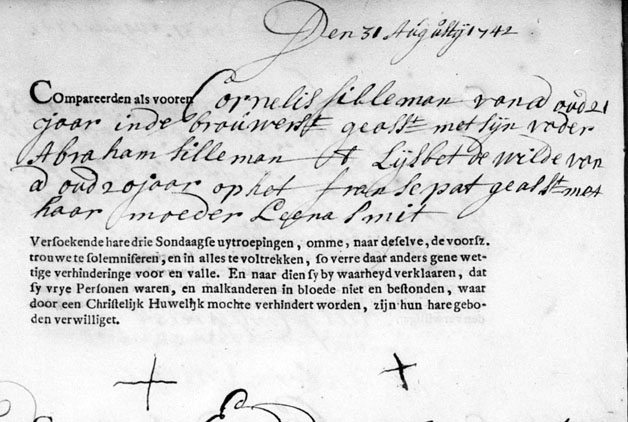 Den 31 Augustij 1742
Compareerden als vooren Cornelis sibleman van A oud 21
jaar inde brouwerst geasst met sijn vader
Abraham silleman & Lijsbet de wilde van
A oud 20 jaar op het franse pat geasst met
haar moeder Leena Smit
Versoekende hare drie Sondaagse uytroepingen, omme, naar deselve, de voorsz.
trouwe te solemniseren, en in alles te voltrekken, so verre daar anders gene wet-
tige verhinderinge voor en valle. En naar dien sy by waarheyd verklaaren, dat
sy vrye Personen waren, en malkanderen in bloede niet en bestonden, waar
door een Christelijk Huwelijk mochte verhindert worden, zijn hun hare gebo-
den verwilliget.